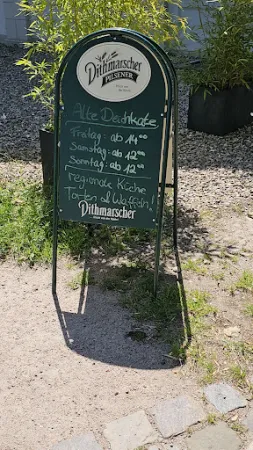 Dithmarscher
PILSENER
Alte Deichkate
Freitag: ab 14 00
Samstag: ab 12 00
Sonntag: ab 12 00
regionale Küche
Torten & Waffeln!
Dithmarscher